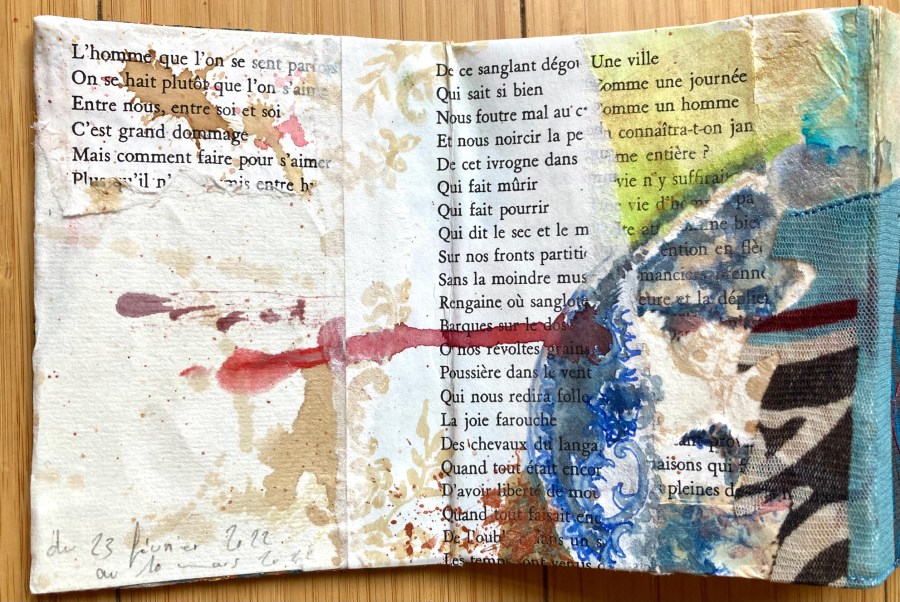 L'homme que l'on se sent parfois
On se hait plutôt que l'on s'aime
Entre nous, entre soi et soi
C'est grand dommage
Mais comment faire pour s'aimer
Plus qu'il n' mis entre
De ce sanglant
Qui sait si bien
Nous foutre mal au
Et nous noircir la
De cet ivrogne dans
Qui fait mûrir
Qui fait pourrir
Qui dit le sec et le m
Sur nos fronts
Sans la moindre mus
Rengaine où sanglote
Barques sur le dos
O nos révoltes grains
Poussière dans le vent
Qui nous redira
La joie farouche
Des chevaux du langa
Quand tout était encor
D'avoir liberté de mou
Quand tout faisait enc
De l'oubl dans un s
Les temps sont venus
Une ville
Comme une journée
Comme un homme
connaîtra-t-on jan
me entière ?
vie n'y suffirait
vie d'hom pa
ne bie
ention en flè
manciers
eure et la déplie
prov
aisons qui
pleines de
du 23 février 2022
au 10 mars 2022